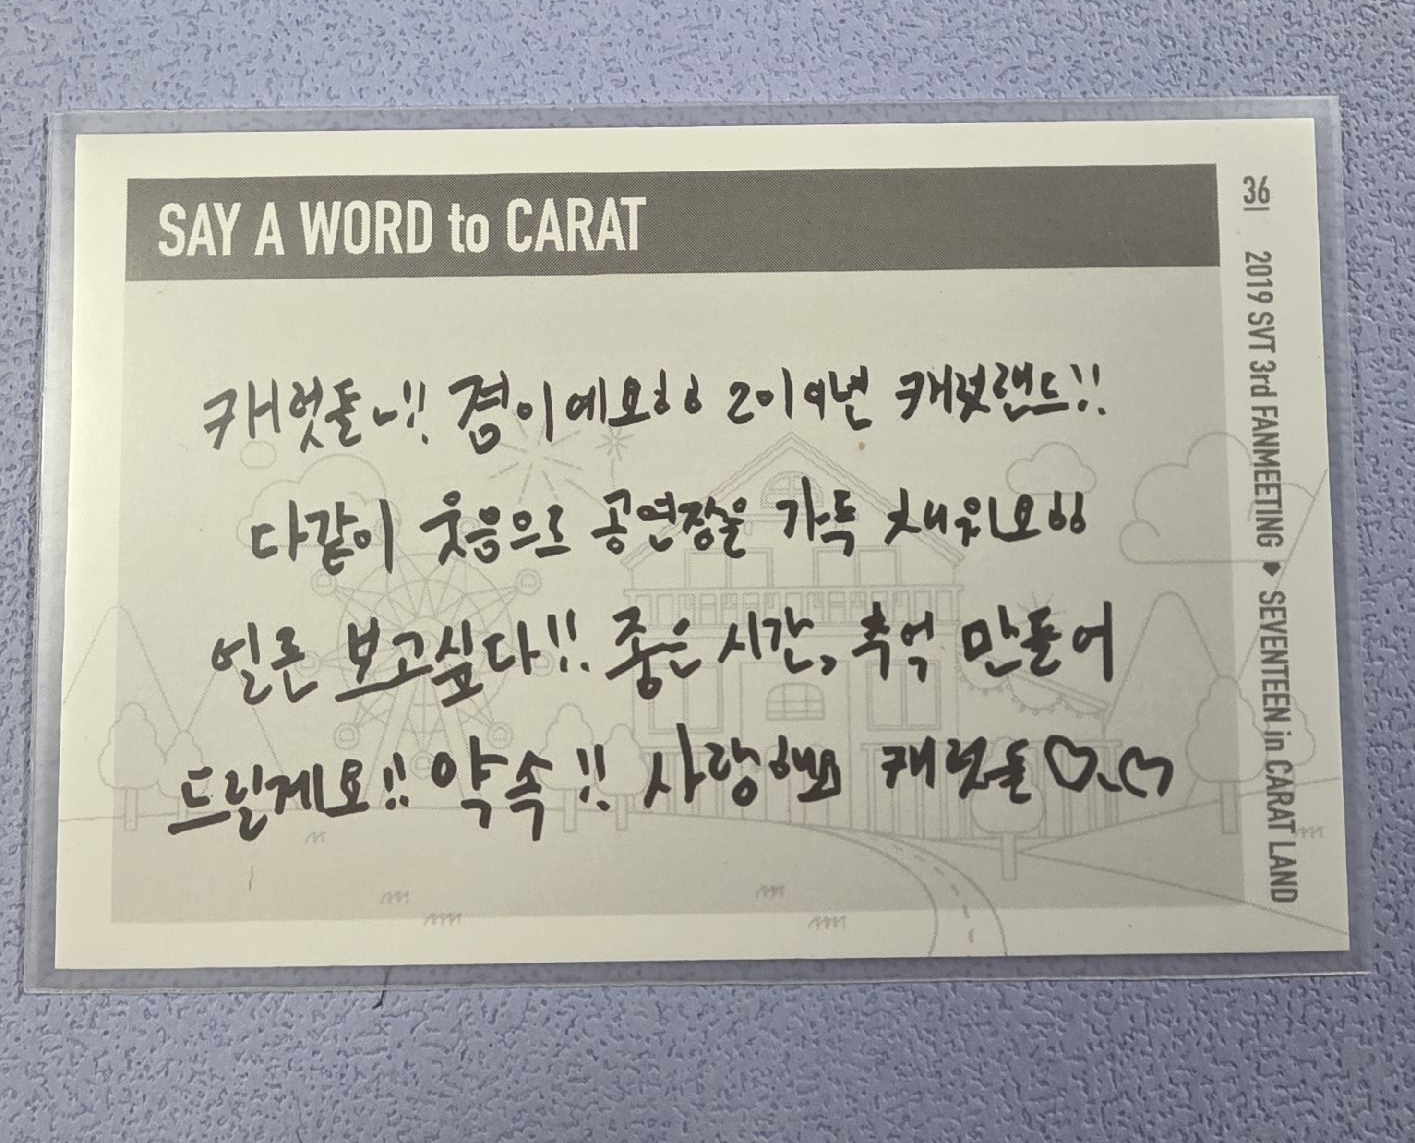 SAY A WORD to CARAT
캐럿들~!! 겸이에요ㅎㅎ 2019년 캐럿랜드!!
다같이 웃음으로 공연장을 가득 채워요ㅎㅎ
얼른 보고싶다!! 좋은 시간, 추억 만들어
드릴게요!! 약속!! 사랑해요 캐럿들♡.♡
36
2019 SVT 3rd FANMEETING ◆ SEVENTEEN in CARAT LAND